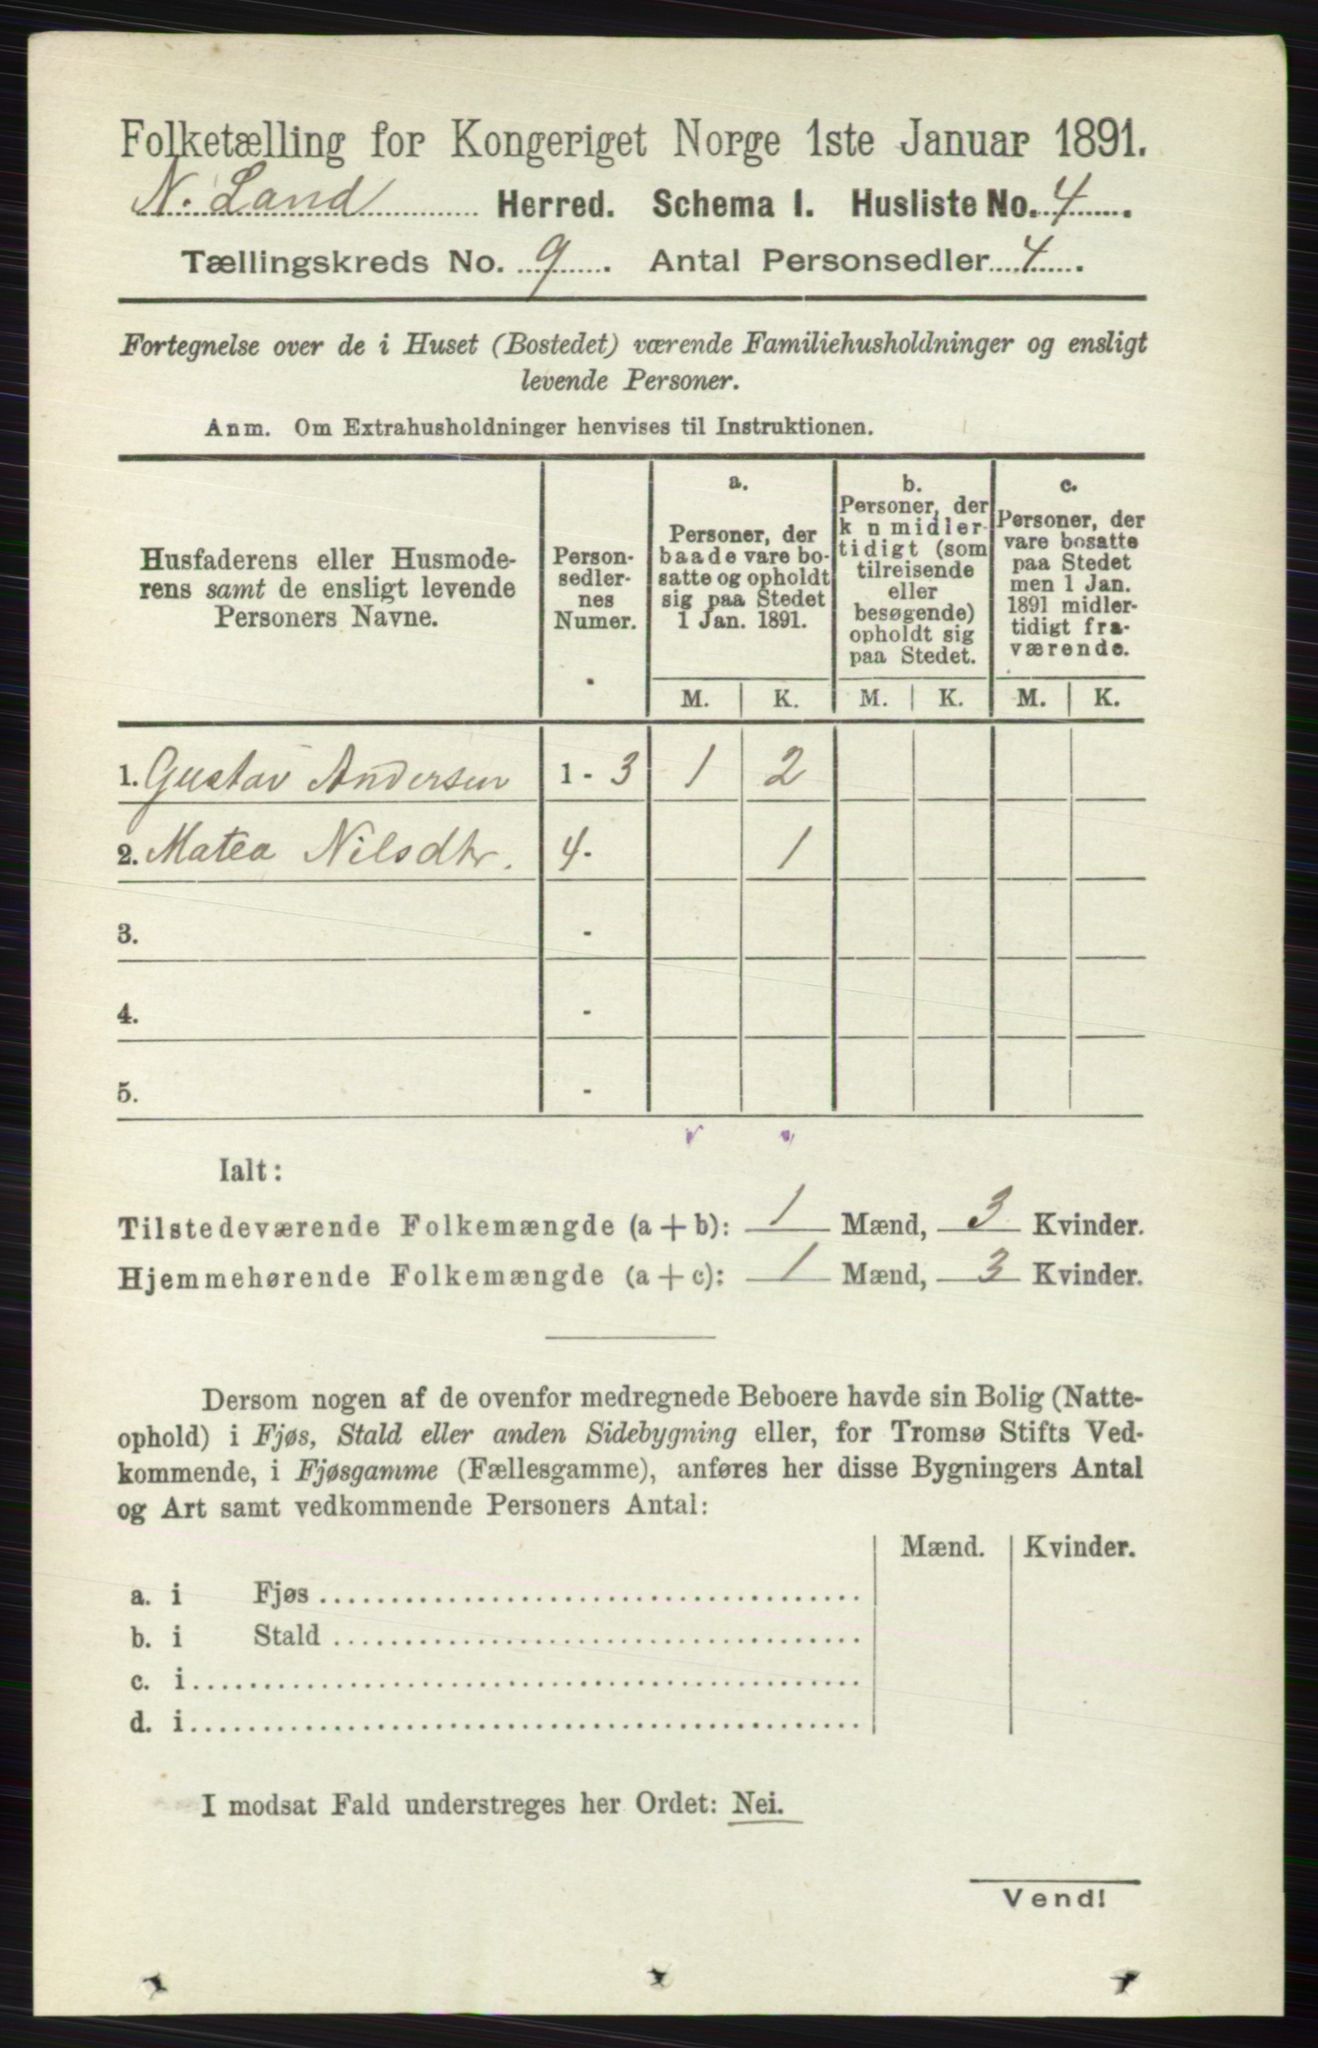 Folketælling for Kongeriget Norge 1ste Januar 1891.
N. Land Herred. Schema I. Husliste No. 4.
Tællingskreds No. 9. Antal Personsedler 4.
Fortegnelse over de i Huset (Bostedet) værende Familiehusholdninger og ensligt
levende Personer.
Anm. Om Extrahusholdninger henvises til Instruktionen.
Husfaderens eller Husmode-
rens samt de ensligt levende
Personers Navne.
Person-
sedler-
nes
Numer.
a.
Personer, der
baade vare bo-
satte og opholdt
sig paa Stedet
1 Jan. 1891.
b.
Personer, der
k n midler-
tidigt (som
tilreisende
eller
besøgende)
opholdt sig
paa Stedet.
c.
Personer, der
vare bosatte
paa Stedet
men 1 Jan.
1891 midler-
tidigt fra-
værende.
M. K. M. K. M. K.
1. Gustav Andersen 1 - 3 1 2
2. Matea Nilsdtr. 4 - 1
3. -
4. -
5. -
Ialt:
Tilstedeværende Folkemængde (a + b): 1 Mænd, 3 Kvinder.
Hjemmehørende Folkemængde (a + c): 1 Mænd, 3 Kvinder.
Dersom nogen af de ovenfor medregnede Beboere havde sin Bolig (Natte-
ophold) i Fjøs, Stald eller anden Sidebygning eller, for Tromsø Stifts Ved-
kommende, i Fjøsgamme (Fællesgamme), anføres her disse Bygningers Antal
og Art samt vedkommende Personers Antal:
Mænd. Kvinder.
a. i Fjøs
b. i Stald
c. i
d. i
I modsat Fald understreges her Ordet: Nei.
Vend!